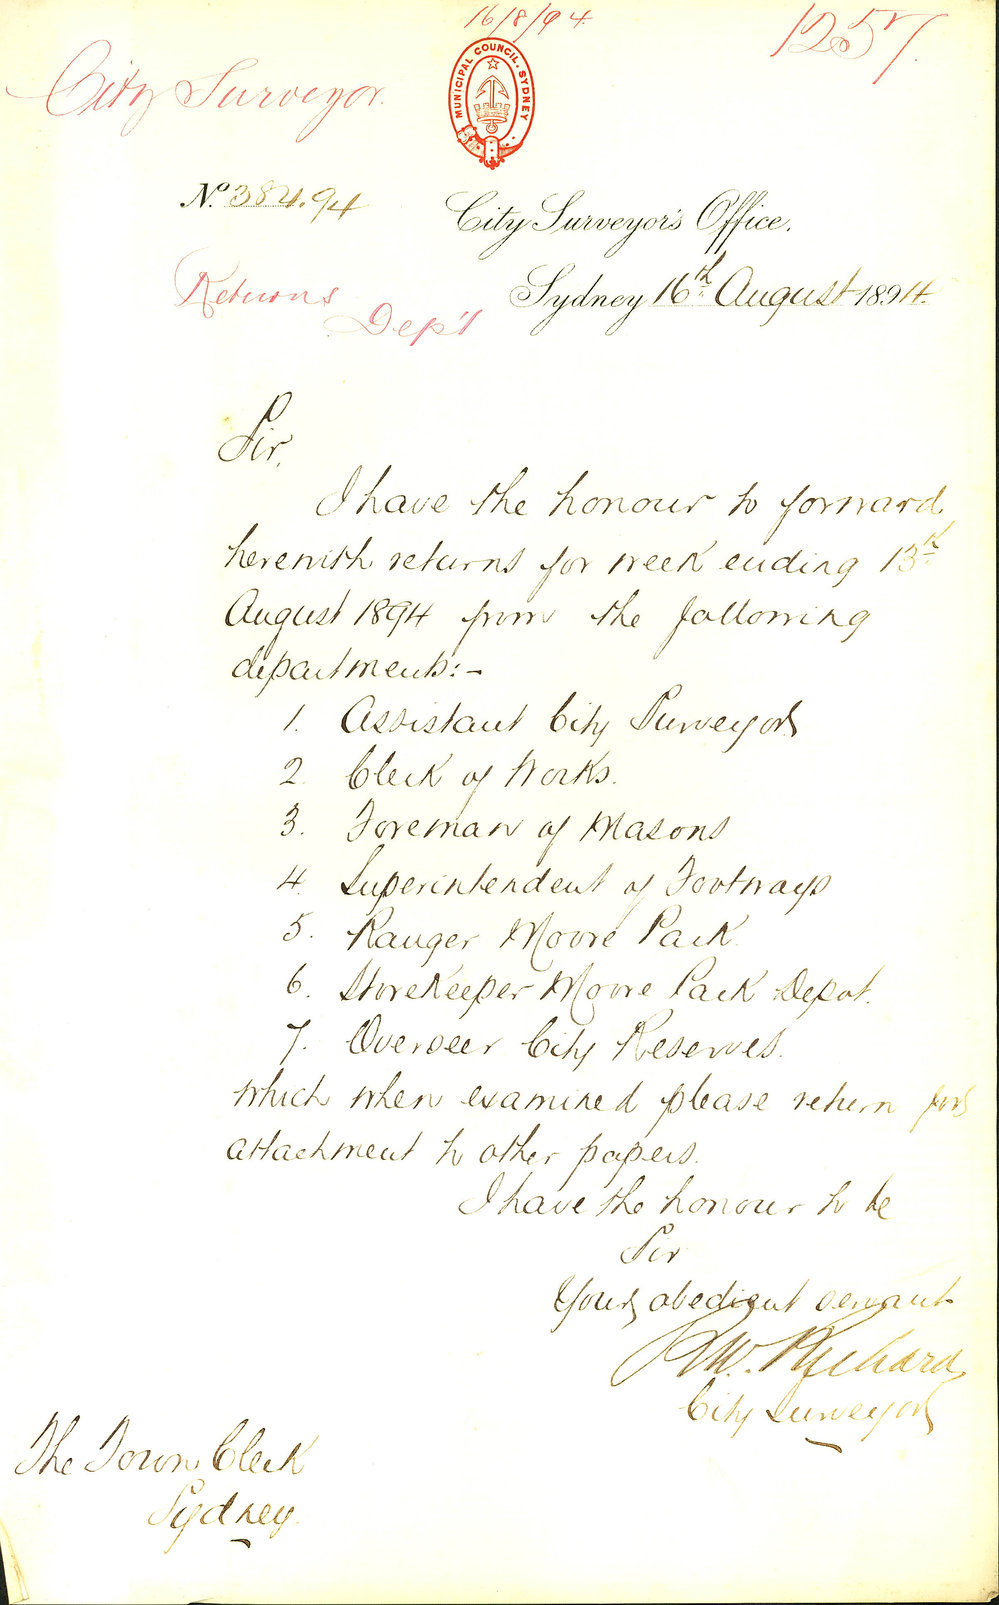 16/8/94
1257
City Surveyor.
MUNICIPAL COUNCIL. SYDNEY
No. 384.94
City Surveyor's Office.
Returns
Dep't
Sydney 16th August 1894.
Sir,
I have the honour to forward
herewith returns for week ending 13th
August 1894 from the following
departments:-
1. Assistant City Surveyor
2. Clerk of Works.
3. Foreman of Masons
4. Superintendent of Footways
5. Ranger Moore Park.
6. Storekeeper Moore Park Depot.
7. Overseer City Reserves.
which when examined please return for
attachment to other papers.
I have the honour to be
Sir
Your obedient servant
R.W. Richards
City Surveyor
The Town Clerk
Sydney.